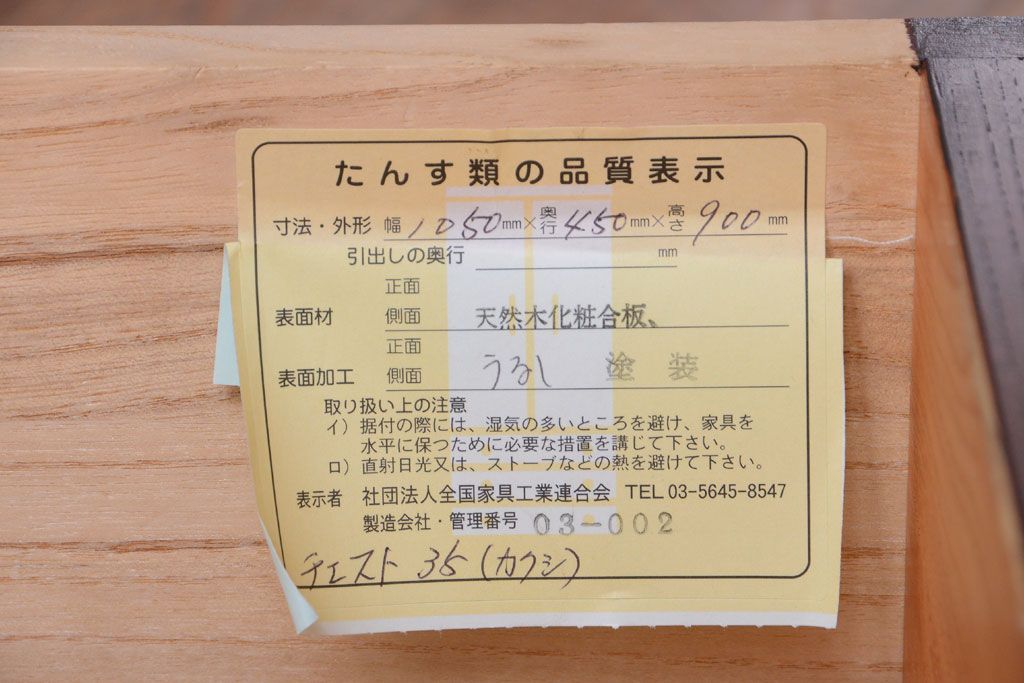 たんす類の品質表示
寸法・外形 幅 1050 mm × 奥行 450 mm × 高さ 900 mm
引出しの奥行 mm
正面
表面材 側面 天然木化粧合板、
正面
表面加工 側面 うるし 塗装
取り扱い上の注意
イ）据付の際には、湿気の多いところを避け、家具を
水平に保つために必要な措置を講じて下さい。
ロ）直射日光又は、ストーブなどの熱を避けて下さい。
表示者 社団法人全国家具工業連合会 TEL 03-5645-8547
製造会社・管理番号 03-002
チェスト 35 (カクシ)